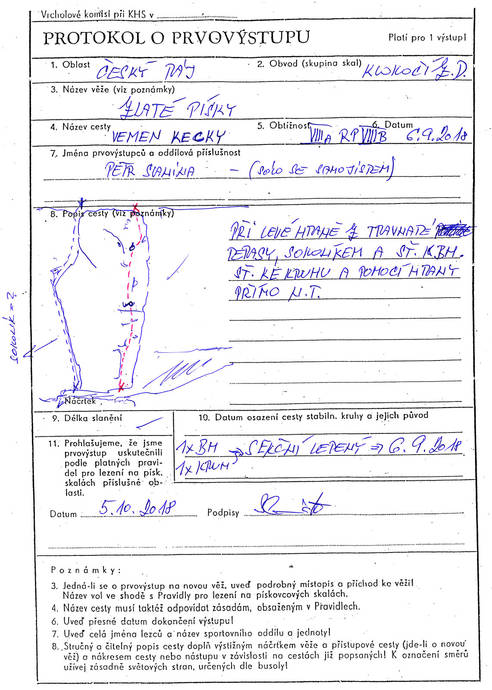 Vrcholové komisi při KHS v
PROTOKOL O PRVOVÝSTUPU Platí pro 1 výstup!
1. Oblast ČESKÝ RÁJ 2. Obvod (skupina skal) KLOKOČÍ Z.D.
3. Název věže (viz poznámky)
ZLATÉ PÍSKY
4. Název cesty 5. Obtížnost 6. Datum
VEMEN KECKY VIIIA RP VIIIB 6.9.2018
7. Jména prvovýstupců a oddílová příslušnost
PETR SLANINA - (SOLO SE SAMOJISTEM)
8. Popis cesty (viz poznámky)
PŘI LEVÉ HRANĚ Z TRAVNATÉ
TERASY, SOKOLÍKEM A ST. K BH.
ST. KE KRUHU A POMOCÍ HRANY
PŘÍMO N.T.
SOKOLÍK = ?
Náčrtek
9. Délka slanění
10. Datum osazení cesty stabiln. kruhy a jejich původ
1x BH → SEKČNÍ LEPENÝ ⇒ 6.9.2018
1x KRUH
11. Prohlašujeme, že jsme
prvovýstup uskutečnili
podle platných pravi-
del pro lezení na písk.
skalách příslušné ob-
lasti.
Datum 5.10.2018 Podpisy
Poznámky:
3. Jedná-li se o prvovýstup na novou věž, uveď podrobný místopis a příchod ke věži!
Název vol ve shodě s Pravidly pro lezení na pískovcových skalách.
4. Název cesty musí taktéž odpovídat zásadám, obsaženým v Pravidlech.
6. Uveď přesné datum dokončení výstupu!
7. Uveď celá jména lezců a název sportovního oddílu a jednoty!
8. Stručný a čitelný popis cesty doplň výstižným náčrtkem věže a přístupové cesty (jde-li o novou
věž) a nákresem cesty nebo nástupu v závislosti na cestách již popsaných! K označení směrů
užívej zásadně světových stran, určených dle busoly!